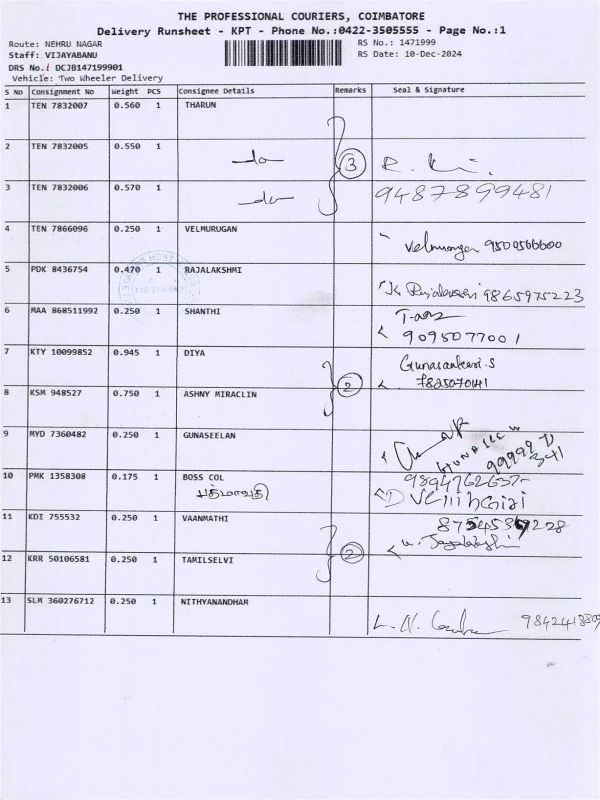 THE PROFESSIONAL COURIERS, COIMBATORE
Delivery Runsheet - KPT - Phone No.:0422-3505555 - Page No.:1
Route: NEHRU NAGAR
RS No.: 1471999
Staff: VIJAYABANU
RS Date: 10-Dec-2024
DRS No.: DCJB147199901
Vehicle: Two Wheeler Delivery
S No Consignment No Weight PCS Consignee Details Remarks Seal & Signature
1 TEN 7832007 0.560 1 THARUN
2 TEN 7832005 0.550 1 do 3
3 TEN 7832006 0.570 1 do 9487899481
4 TEN 7866096 0.250 1 VELMURUGAN Velmurugan 9500566600
5 PDK 8436754 0.470 1 RAJALAKSHMI K. Rajalakshmi 9865975223
6 MAA 868511992 0.250 1 SHANTHI
9095077001
7 KTY 10099852 0.945 1 DIYA Gunasankari.S
2 7825070141
8 KSM 948527 0.750 1 ASHNY MIRACLIN
9 MYD 7360482 0.250 1 GUNASEELAN
10 PMK 1358308 0.175 1 BOSS COL 9894762637
பத்மாவதி
11 KDI 755532 0.250 1 VAANMATHI
2
12 KRR 50106581 0.250 1 TAMILSELVI
13 SLM 360276712 0.250 1 NITHYANANDHAM